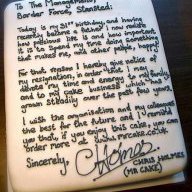 To The Management,
Border Force, Stansted:
Today is my 31st birthday, and having
recently become a father I now realise
how precious life is and how important
it is to spend my time doing something
that makes me, and other people, happy!
For that reason I hereby give notice of
my resignation, in order that I may
devote my time and energy to my family,
and to my cake business which has
grown steadily over the past few years.
I wish the organisation and my colleagues
the best for the future, and I remind
you that, if you enjoy this cake, you can
order more at www.mrcake.co.uk.
Sincerely,
CHRIS HOLMES
(MR CAKE)